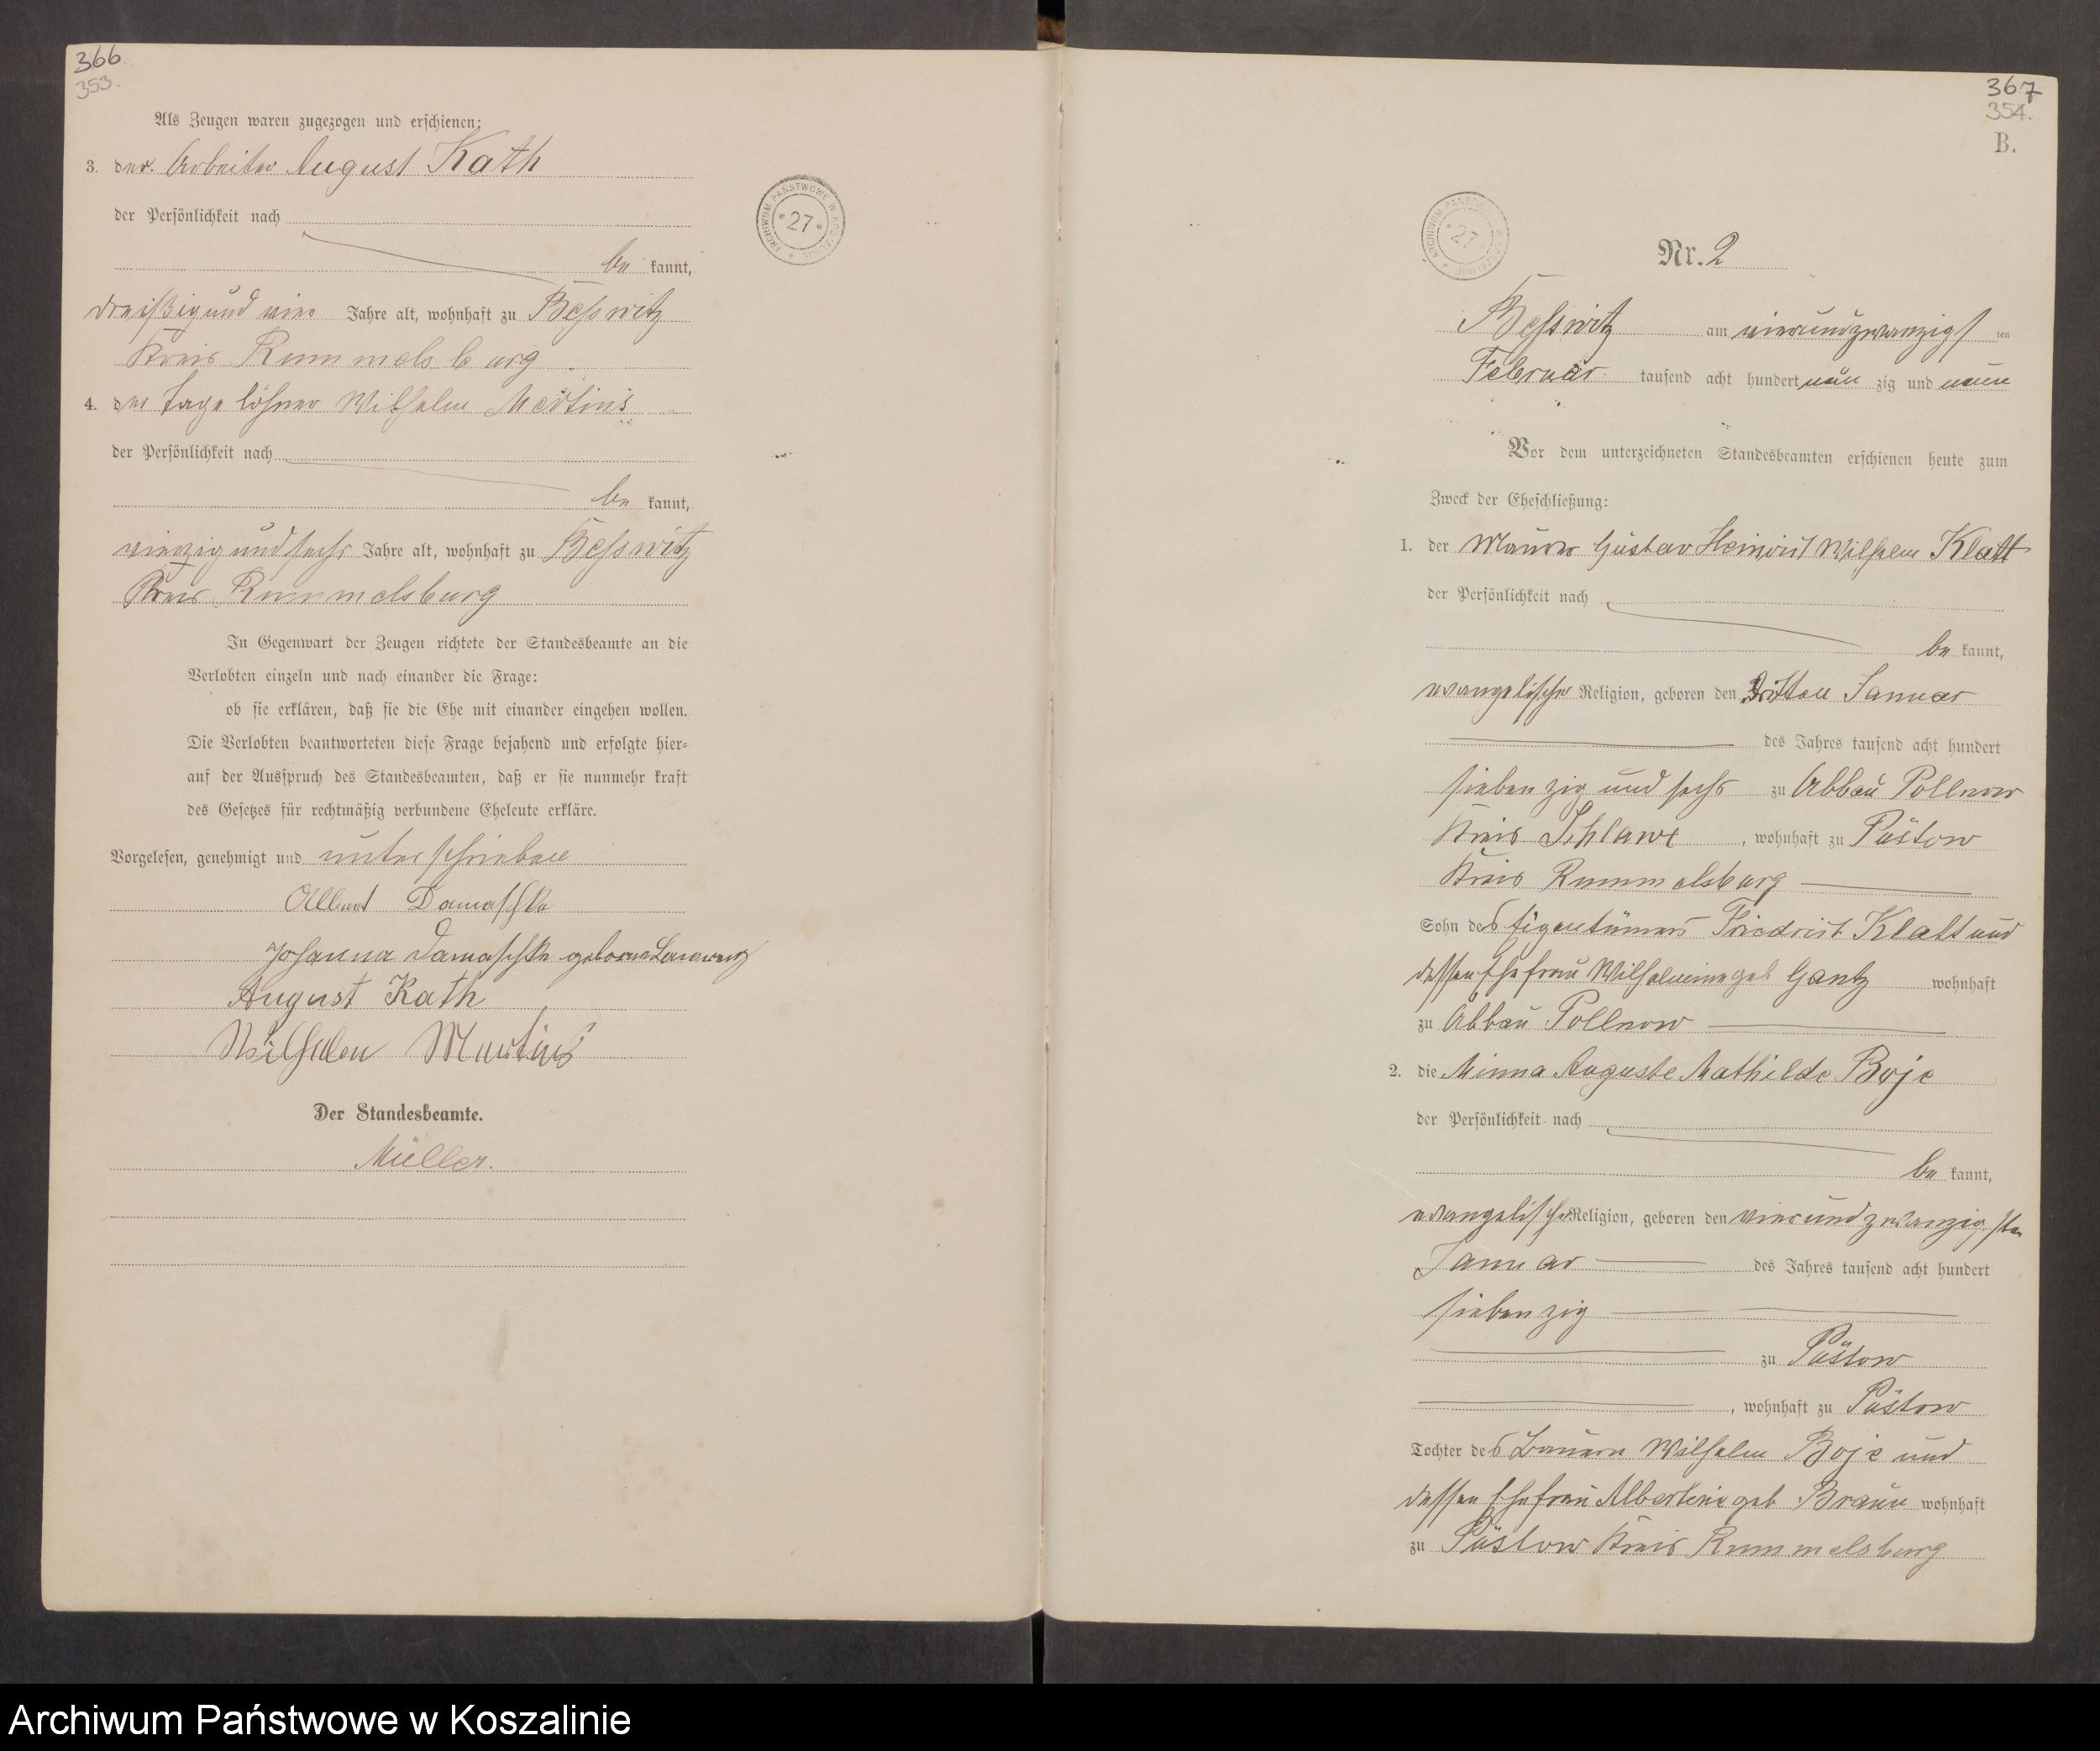 366
353.
Als Zeugen waren zugezogen und erschienen:
3. der Arbeiter August Kath
der Persönlichkeit nach
be kannt,
dreißig und vier Jahre alt, wohnhaft zu Beßwitz
Kreis Rummelsburg
4. der Tagelöhner Wilhelm Martins
der Persönlichkeit nach
be kannt,
vierzig und sechs Jahre alt, wohnhaft zu Beßwitz
Kreis Rummelsburg
In Gegenwart der Zeugen richtete der Standesbeamte an die
Verlobten einzeln und nach einander die Frage:
ob sie erklären, daß sie die Ehe mit einander eingehen wollen.
Die Verlobten beantworteten diese Frage bejahend und erfolgte hier-
auf der Ausspruch des Standesbeamten, daß er sie nunmehr kraft
des Gesetzes für rechtmäßig verbundene Eheleute erkläre.
Vorgelesen, genehmigt und unterschrieben
Albert Damaschke
Johanna Damaschke geborne
August Kath
Wilhelm Martins
Der Standesbeamte.
Müller.
ARCHIWUM PAŃSTWOWE W KOSZALINIE
* 27 *
367
354.
B.
ARCHIWUM PAŃSTWOWE W KOSZALINIE
* 27 *
Nr. 2
Beßwitz am vierundzwanzigsten
Februar tausend acht hundert neun zig und neun
Vor dem unterzeichneten Standesbeamten erschienen heute zum
Zweck der Eheschließung:
1. der Maurer Gustav Heinrich Wilhelm Klatt
der Persönlichkeit nach
be kannt,
evangelischer Religion, geboren den dritten Januar
des Jahres tausend acht hundert
siebenzig und sechs zu Abbau Pollnow
Kreis Schlawe, wohnhaft zu Püstow
Kreis Rummelsburg
Sohn des Eigentümers Friedrich Klatt und
dessen Ehefrau Wilhelmine geb Gantz wohnhaft
zu Abbau Pollnow
2. die Minna Auguste Mathilde Boje
der Persönlichkeit nach
be kannt,
evangelischer Religion, geboren den vierundzwanzigsten
Januar des Jahres tausend acht hundert
siebenzig
zu Püstow
, wohnhaft zu Püstow
Tochter des Bauern Wilhelm Boje und
dessen Ehefrau Albertine geb Braun wohnhaft
zu Püstow Kreis Rummelsburg
Archiwum Państwowe w Koszalinie